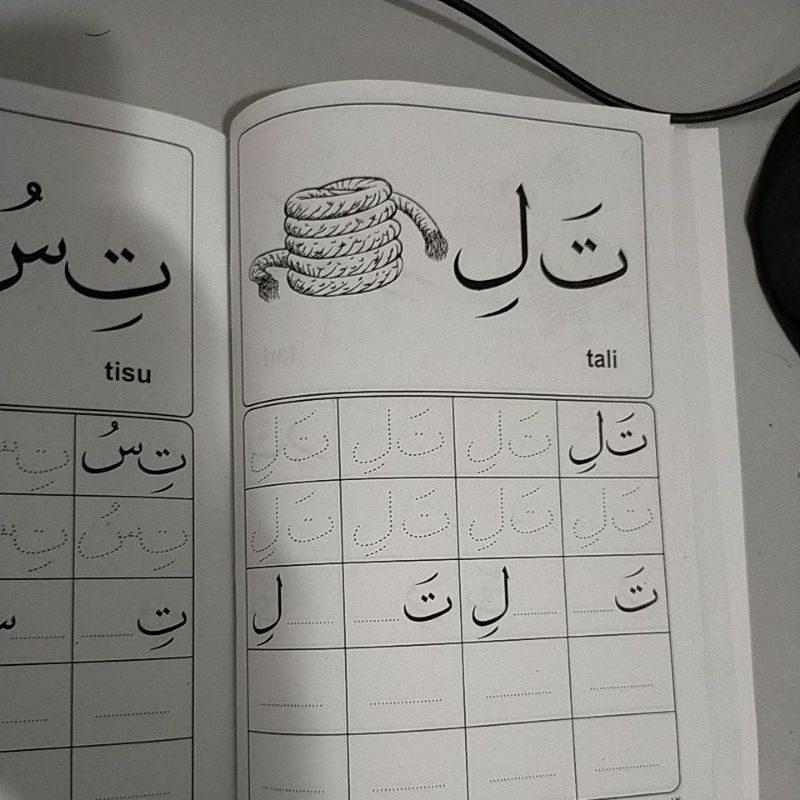 تَ لِ
tali
تَ لِ تَ لِ تَ لِ تَ لِ
تَ لِ تَ لِ تَ لِ تَ لِ
تَ لِ تَ لِ
تِ سُ
tisu
تِ سُ تِ
تِ سُ تِ
تِ